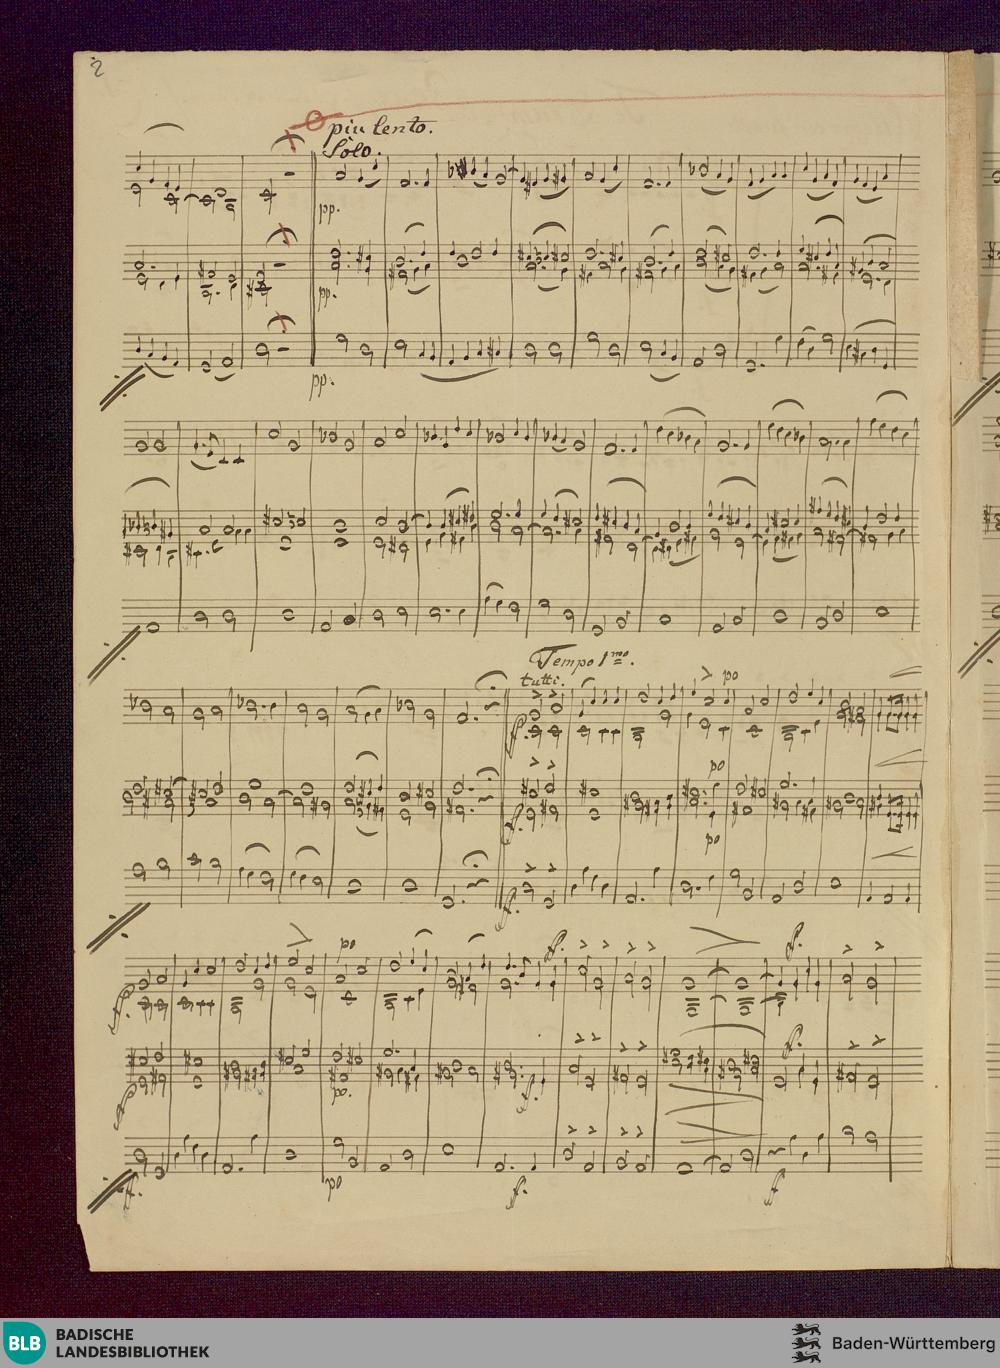 2
più lento.
Solo.
pp.
pp.
pp.
Tempo 1mo.
tutti.
po
f.
po
f.
po
f.
po
f.
f.
f.
f.
po.
f.
f.
f.
po
f.
f
BLB BADISCHE
LANDESBIBLIOTHEK
Baden-Württemberg